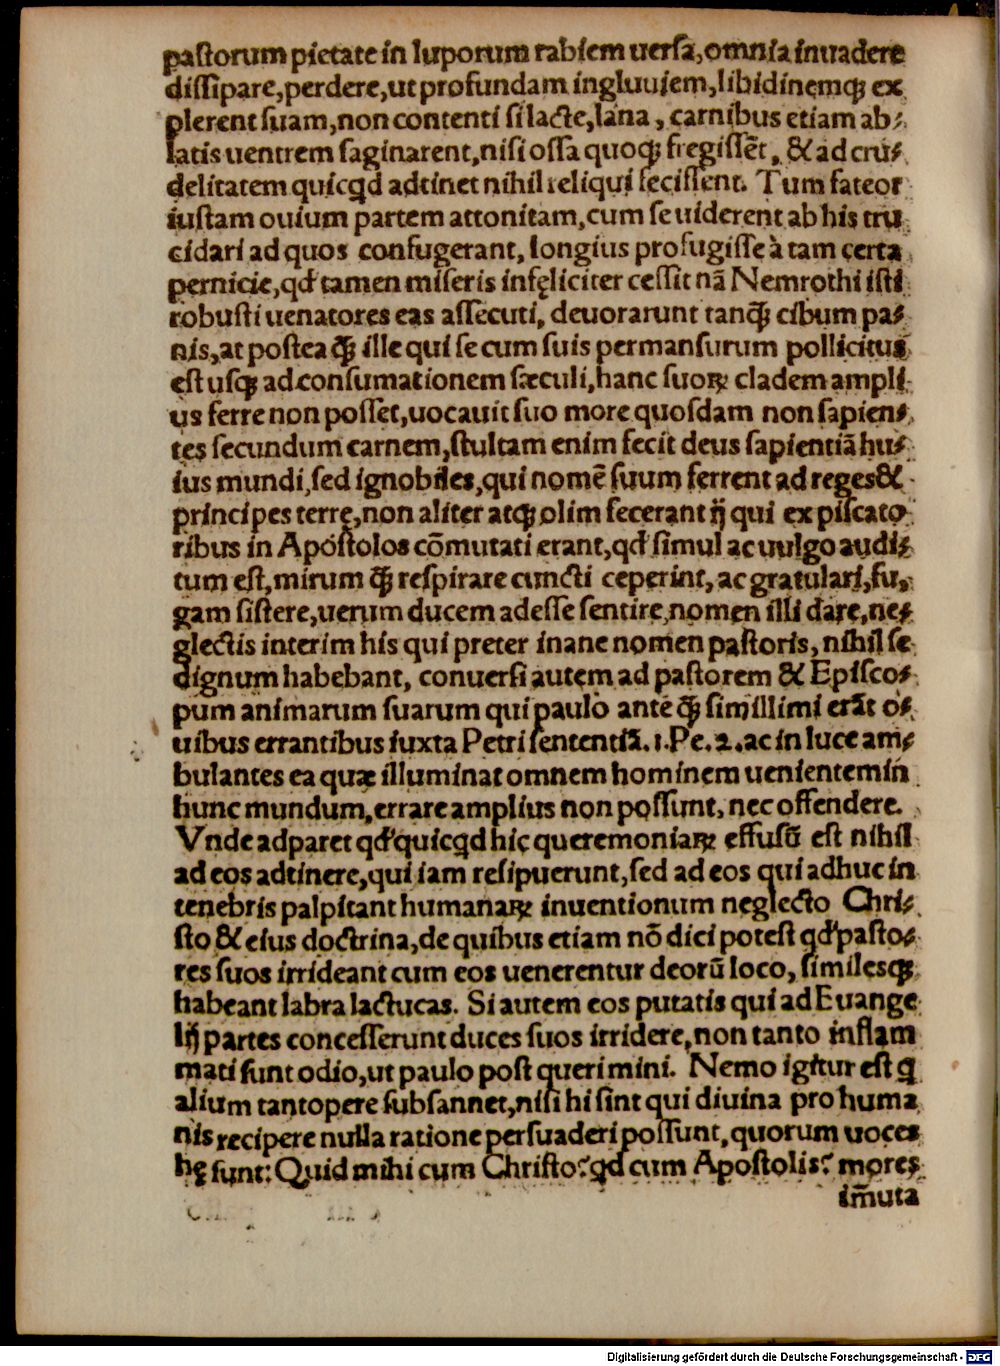 pastorum pietate in luporum rabiem uersa, omnia inuadere
dissipare, perdere, ut profundam ingluuiem, libidinemqꝫ ex
plerent suam, non contenti si lacte, lana, carnibus etiam ab⸗
latis uentrem saginarent, nisi ossa quoqꝫ fregissẽt, & ad cru⸗
delitatem quicqd adtinet nihil reliqui fecissent. Tum fateor
iustam ouium partem attonitam, cum se uiderent ab his tru
cidari ad quos confugerant, longius profugisse à tam certa
pernicie, qd tamen miseris infęliciter cessit nã Nemrothi isti
robusti uenatores eas assecuti, deuorarunt tanqꝫ cibum pa⸗
nis, at postea qꝫ ille qui se cum suis permansurum pollicitus
est usqꝫ ad consumationem sæculi, hanc suoꝝ cladem ampli
us ferre non posset, uocauit suo more quosdam non sapien⸗
tes secundum carnem, stultam enim fecit deus sapientiã hu⸗
ius mundi, sed ignobiles, qui nomẽ suum ferrent ad reges &
principes terrę, non aliter atqꝫ olim fecerant ij qui ex piscato
ribus in Apostolos cõmutati erant, qd simul ac uulgo audi⸗
tum est, mirum qꝫ respirare cuncti ceperint, ac gratulari, fu⸗
gam sistere, uerum ducem adesse sentire, nomen illi dare, ne⸗
glectis interim his qui preter inane nomen pastoris, nihil se
dignum habebant, conuersi autem ad pastorem & Episco⸗
pum animarum suarum qui paulo ante qꝫ simillimi erãt o⸗
uibus errantibus iuxta Petri sententiã. 1. Pe. 2. ac in luce am⸗
bulantes ea quæ illuminat omnem hominem uenientem in
hunc mundum, errare amplius non possunt, nec offendere.
Vnde adparet qd quicqd hic queremoniaꝝ effusũ est nihil
ad eos adtinere, qui iam resipuerunt, sed ad eos qui adhuc in
tenebris palpitant humanaꝝ inuentionum neglecto Chri⸗
sto & eius doctrina, de quibus etiam nõ dici potest qd pasto⸗
res suos irrideant cum eos uenerentur deorũ loco, similesqꝫ
habeant labra lactucas. Si autem eos putatis qui ad Euange
lij partes concesserunt duces suos irridere, non tanto inflam
mati sunt odio, ut paulo post querimini. Nemo igitur est q
alium tantopere subsannet, nisi hi sint qui diuina pro huma
nis recipere nulla ratione persuaderi possunt, quorum uoces
hę sunt: Quid mihi cum Christo? qd cum Apostolis? mores
im̃uta
Digitalisierung gefördert durch die Deutsche Forschungsgemeinschaft - DFG